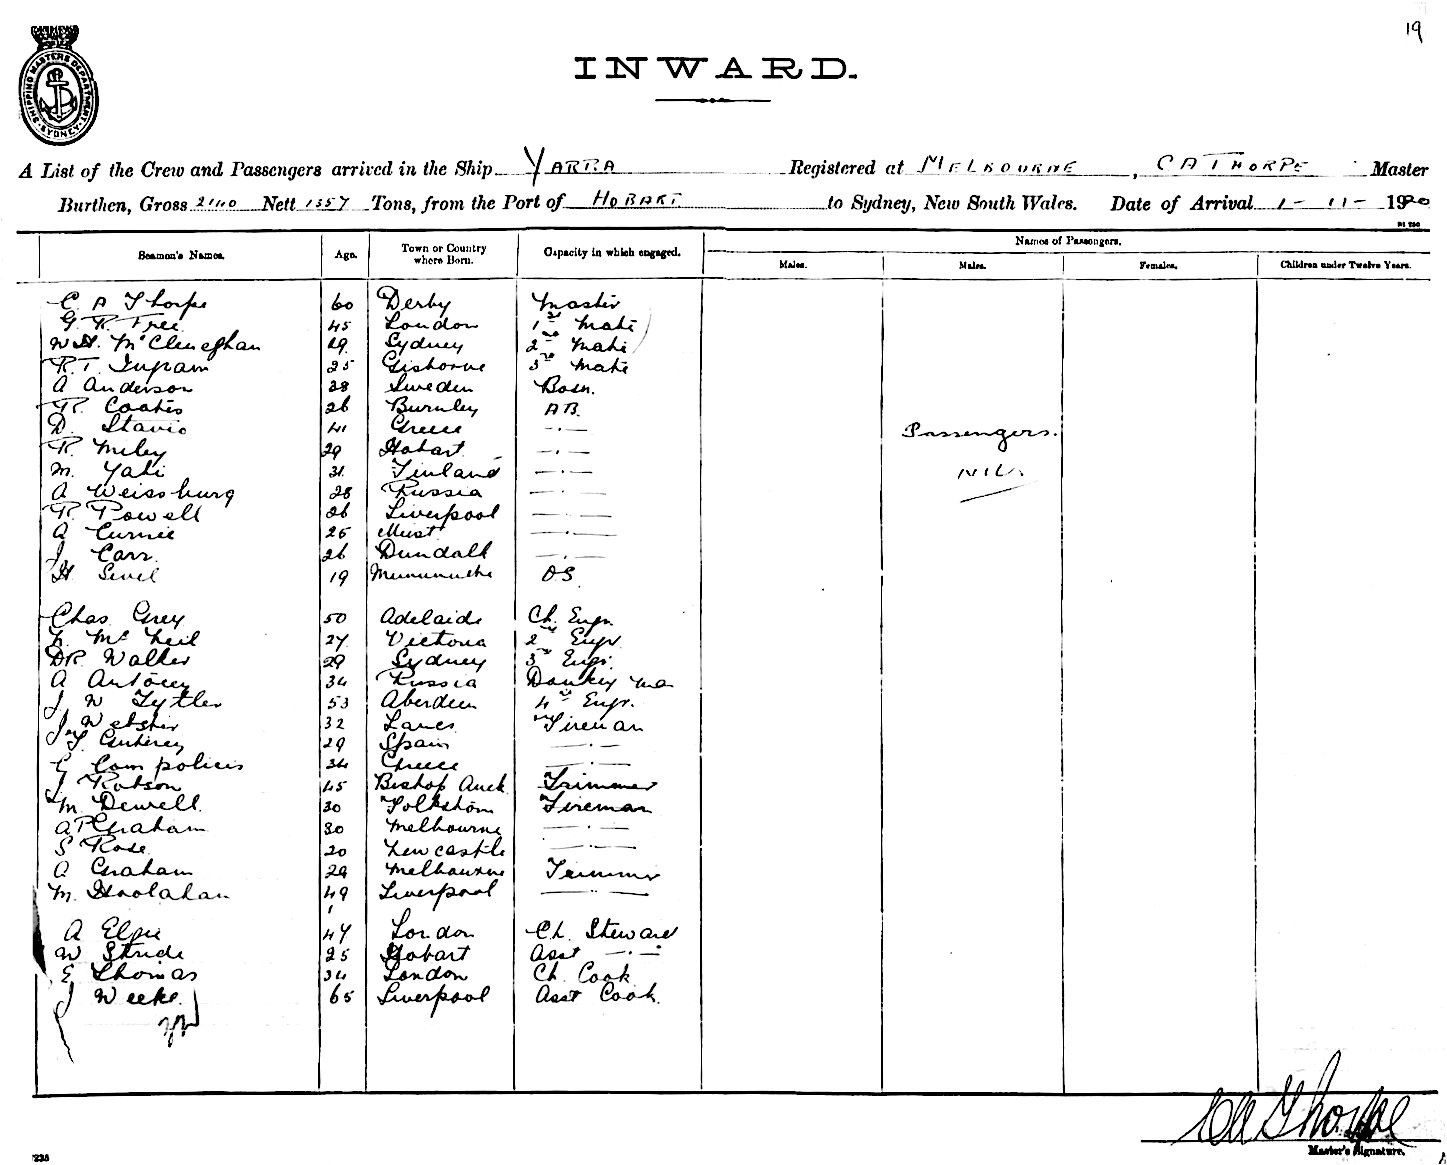 19
SHIPPING MASTERS DEPARTMENT. SYDNEY.
INWARD.
A List of the Crew and Passengers arrived in the Ship YARRA Registered at MELBOURNE, C A THORPE Master
Burthen, Gross 2140 Nett 1357 Tons, from the Port of HOBART to Sydney, New South Wales. Date of Arrival 1-11-1920
Seamen's Names. Age. Town or Country where Born. Capacity in which engaged. Names of Passengers.
Males. Males. Females. Children under Twelve Years.
C A Thorpe 60 Derby Master
G. R. Tree 45 London 1st Mate
W H. McCleneghan 29 Sydney 2nd Mate
R. T. Ingram 25 Gisborne 3rd Mate
A Anderson 38 Sweden Bosn.
R. Coates 26 Burnley AB.
D. Stavio 41 Greece —·—
Passengers.
R. Miley 29 Hobart —·—
M. Yaki 31 Finland —·—
NIL.
A Weissburg 28 Russia —·—
R Powell 26 Liverpool —·—
A Currie 25 —·—
J. Carr 26 Dundalk —·—
H. 19 OS
Chas Grey 50 Adelaide Ch. Engr.
McNeil 27 Victoria 2nd Engr
DR. Walker 29 Sydney 3rd Engr.
A 34 Russia Donkey man
J. W Tytler 53 Aberdeen 4th Engr.
J Webster 32 Lancs Fireman
29 Spain —·—
G Compolicis 34 Greece —·—
J Robson 45 Bishop Auck Trimmer
M. Dewell 30 Folkstone Fireman
A P Graham 30 Melbourne —·—
S Rose 20 Newcastle —·—
A Graham 29 Melbourne Trimmer
M. Hoolahan 49 Liverpool —·—
A Elpie 47 London Ch. Steward
W Stride 25 Hobart Asst —·—
E Thomas 34 London Ch. Cook
J Weeke 65 Liverpool Asst Cook
C A Thorpe
Master's Signature.
235